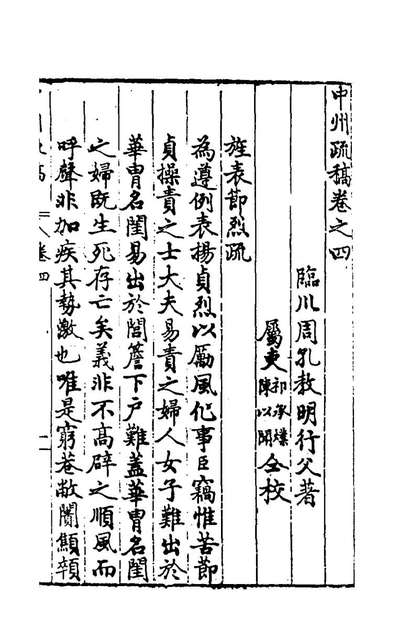 中州疏稿卷之四
臨川周孔教明行父著
屬吏祁承㸁陳以聞仝校
旌表節烈疏
為遵例表揚貞烈以勵風化事臣竊惟苦節
貞操責之士大夫易責之婦人女子難出於
華胄名閨易出於閭簷下戶難蓋華胄名閨
之婦既生死存亡矣義非不高辟之順風而
呼聲非加疾其勢激也唯是窮巷敝闤顦顇
卷四
一